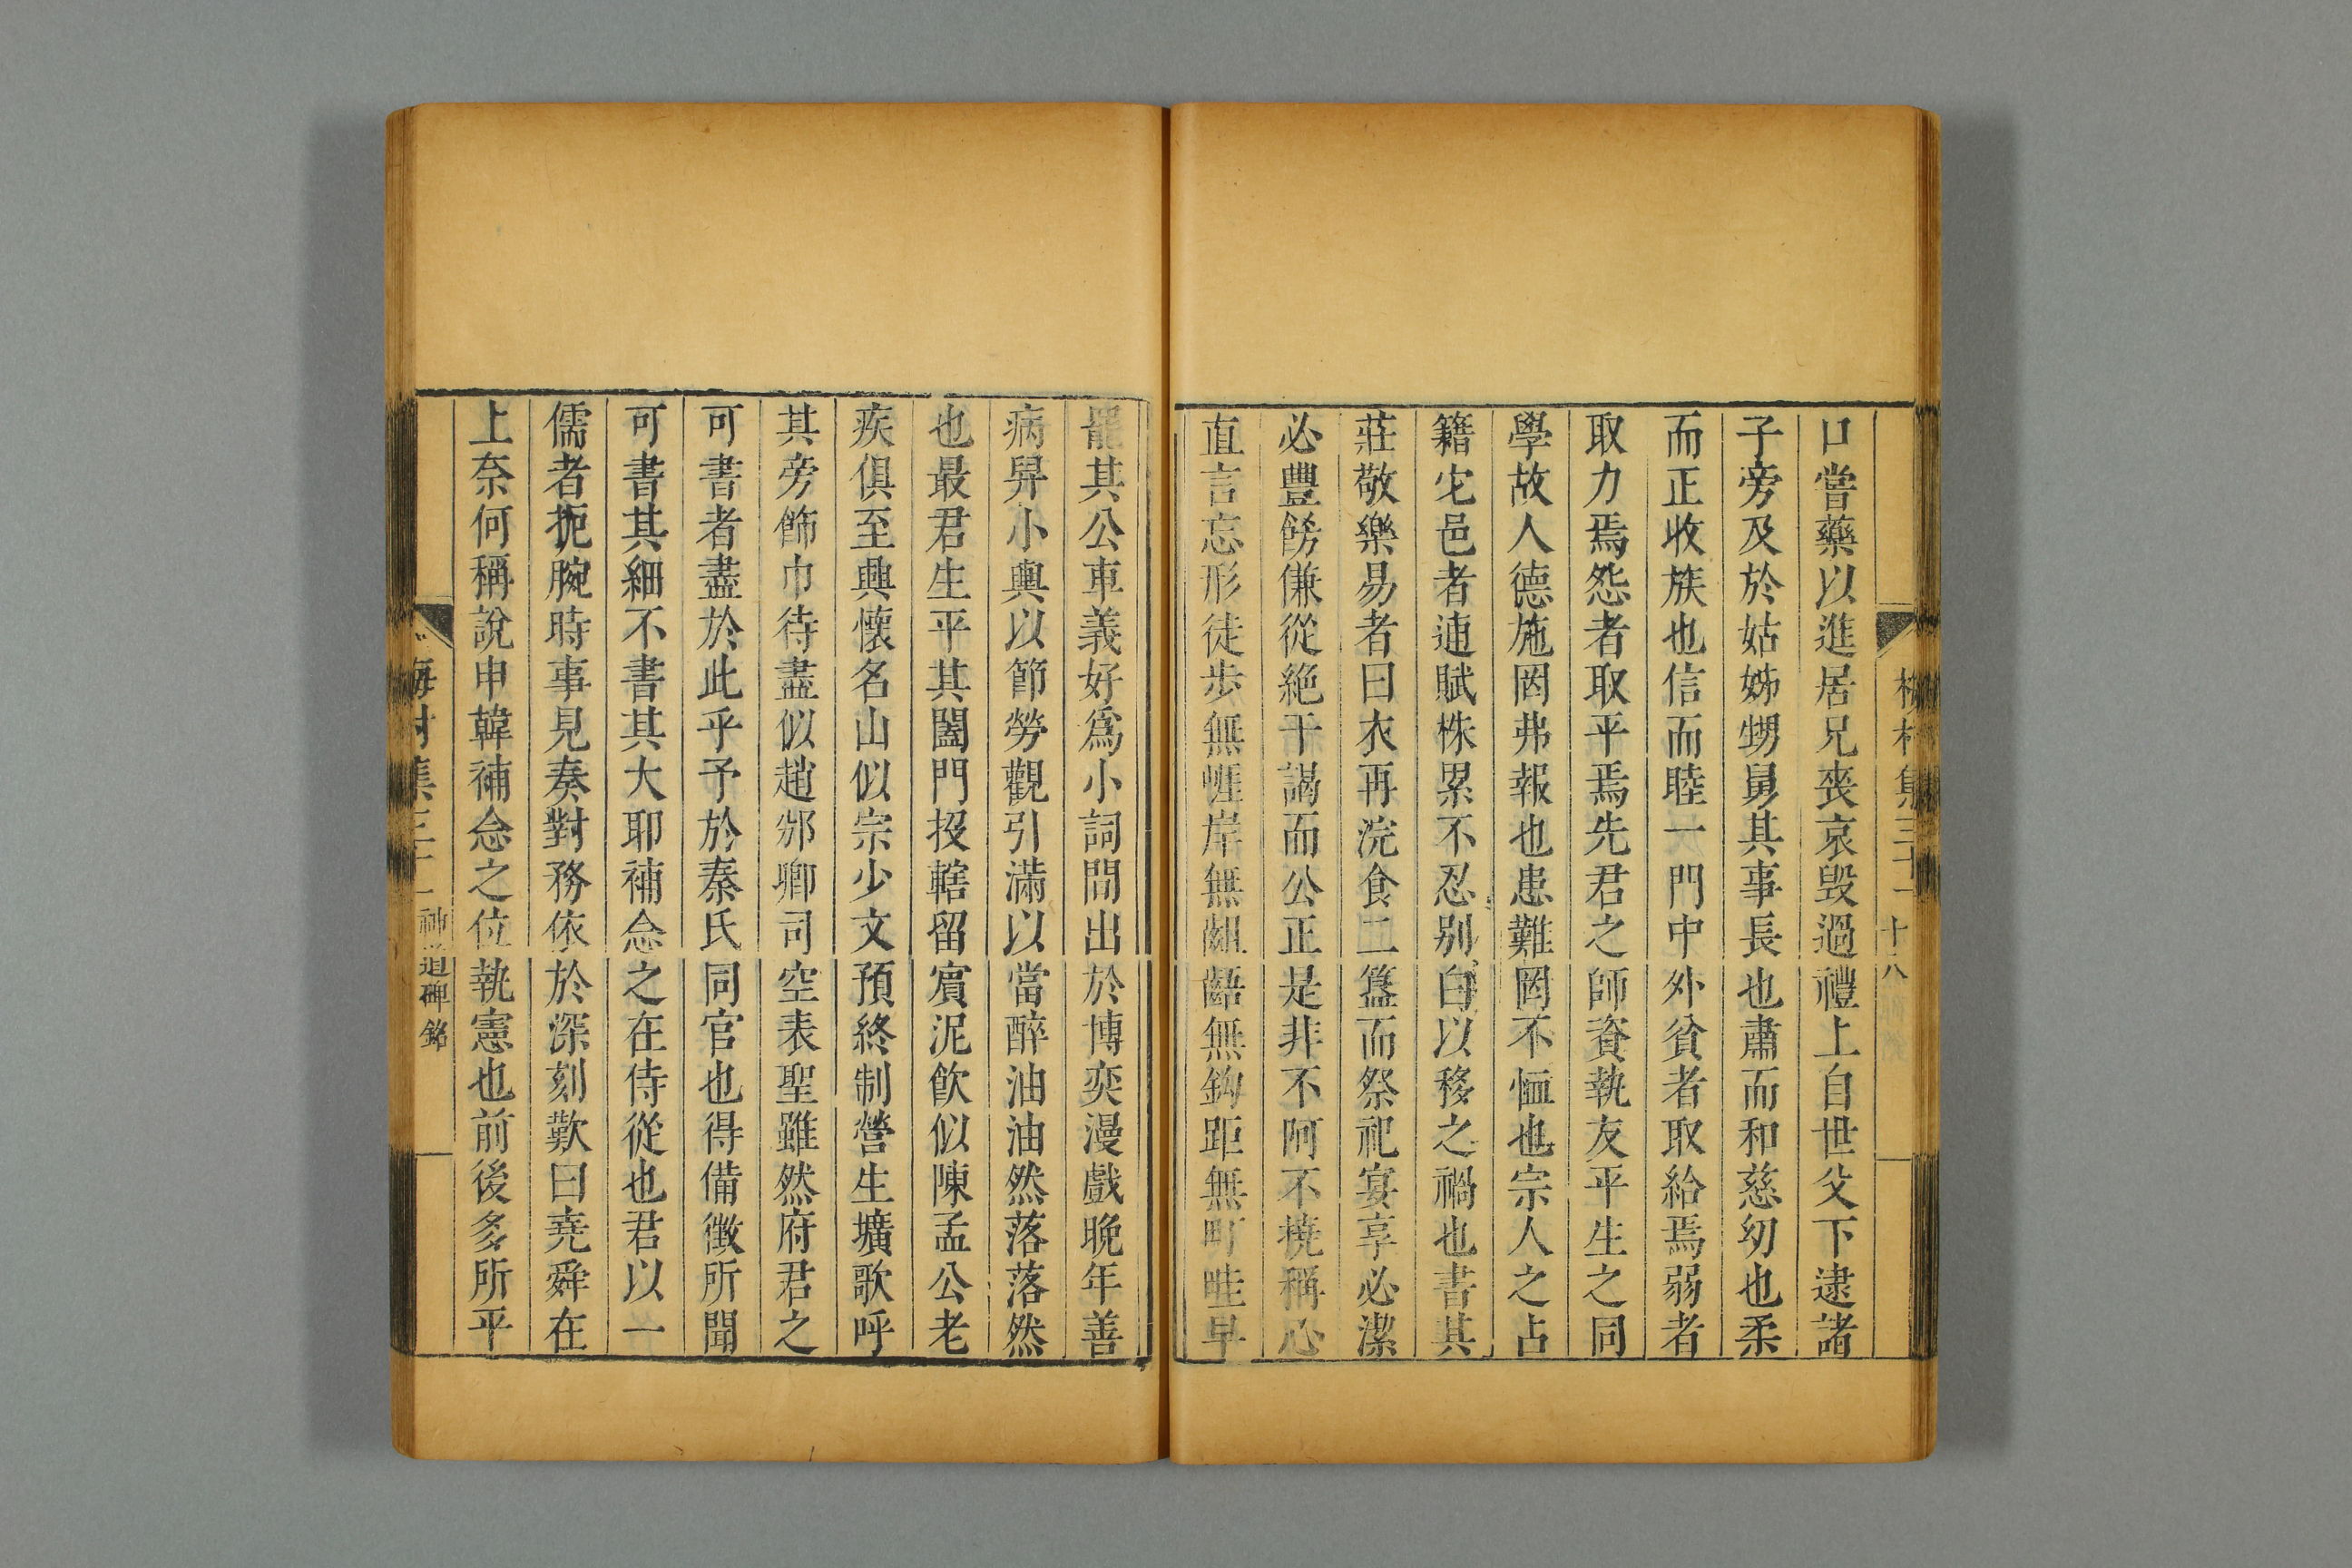 梅村集三十一 十八
口嘗藥以進居兄喪哀毀過禮上自世父下逮諸
子旁及於姑姊甥舅其事長也肅而和慈幼也柔
而正收族也信而睦一門中外貧者取給焉弱者
取力焉怨者取平焉先君之師資執友平生之同
學故人德施罔弗報也患難罔不恤也宗人之占
籍它邑者逋賦株累不忍别白以移之禍也書其
莊敬樂易者曰衣再浣食二簋而祭祀宴享必潔
必豐餝傔從絶干謁而公正是非不阿不撓稱心
直言忘形徒步無崕岸無齟齬無鈎距無町畦早
罷其公車義好爲小詞間出於博奕漫戲晚年善
病舁小輿以節勞觀引滿以當醉油油然落落然
也最君生平其闔門投轄留賓泥飲似陳孟公老
疾俱至興懷名山似宗少文預終制營生壙歌呼
其旁飾巾待盡似趙邠卿司空表聖雖然府君之
可書者盡於此乎予於秦氏同官也得備徵所聞
可書其細不書其大耶補念之在侍從也君以一
儒者扼腕時事見奏對務依於深刻歎曰堯舜在
上奈何稱說申韓補念之位執憲也前後多所平
梅村集三十一 神道碑銘